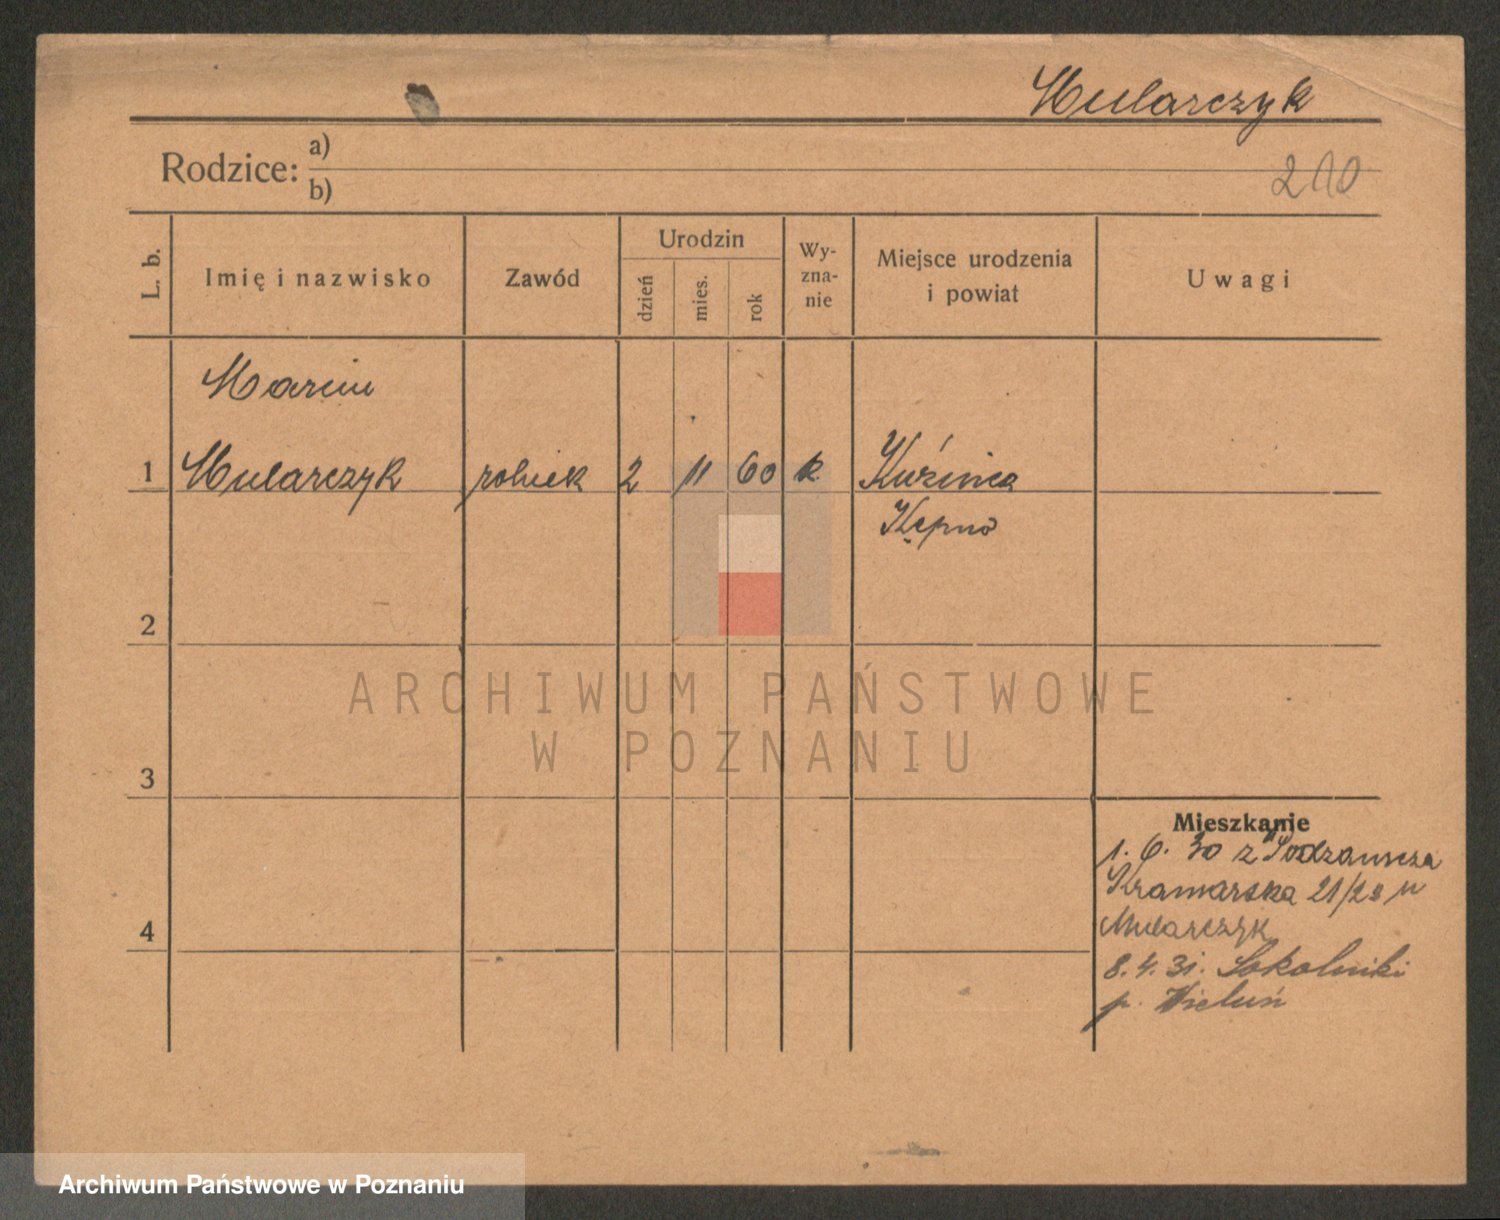 Mularczyk
Rodzice: a)
b)
210
L. b.
Imię i nazwisko
Zawód
Urodzin
dzień
mies.
rok
Wy-
zna-
nie
Miejsce urodzenia
i powiat
Uwagi
Marcin
1 Mularczyk rolnik 2 11 60 k. Kuźnica
Kępno
2
3
4
Mieszkanie
1. 6. 30 z
Kramarska 21/22 u
Mularczyk
8. 4. 31. Sokolniki
p. Wieluń
ARCHIWUM PAŃSTWOWE
W POZNANIU
Archiwum Państwowe w Poznaniu